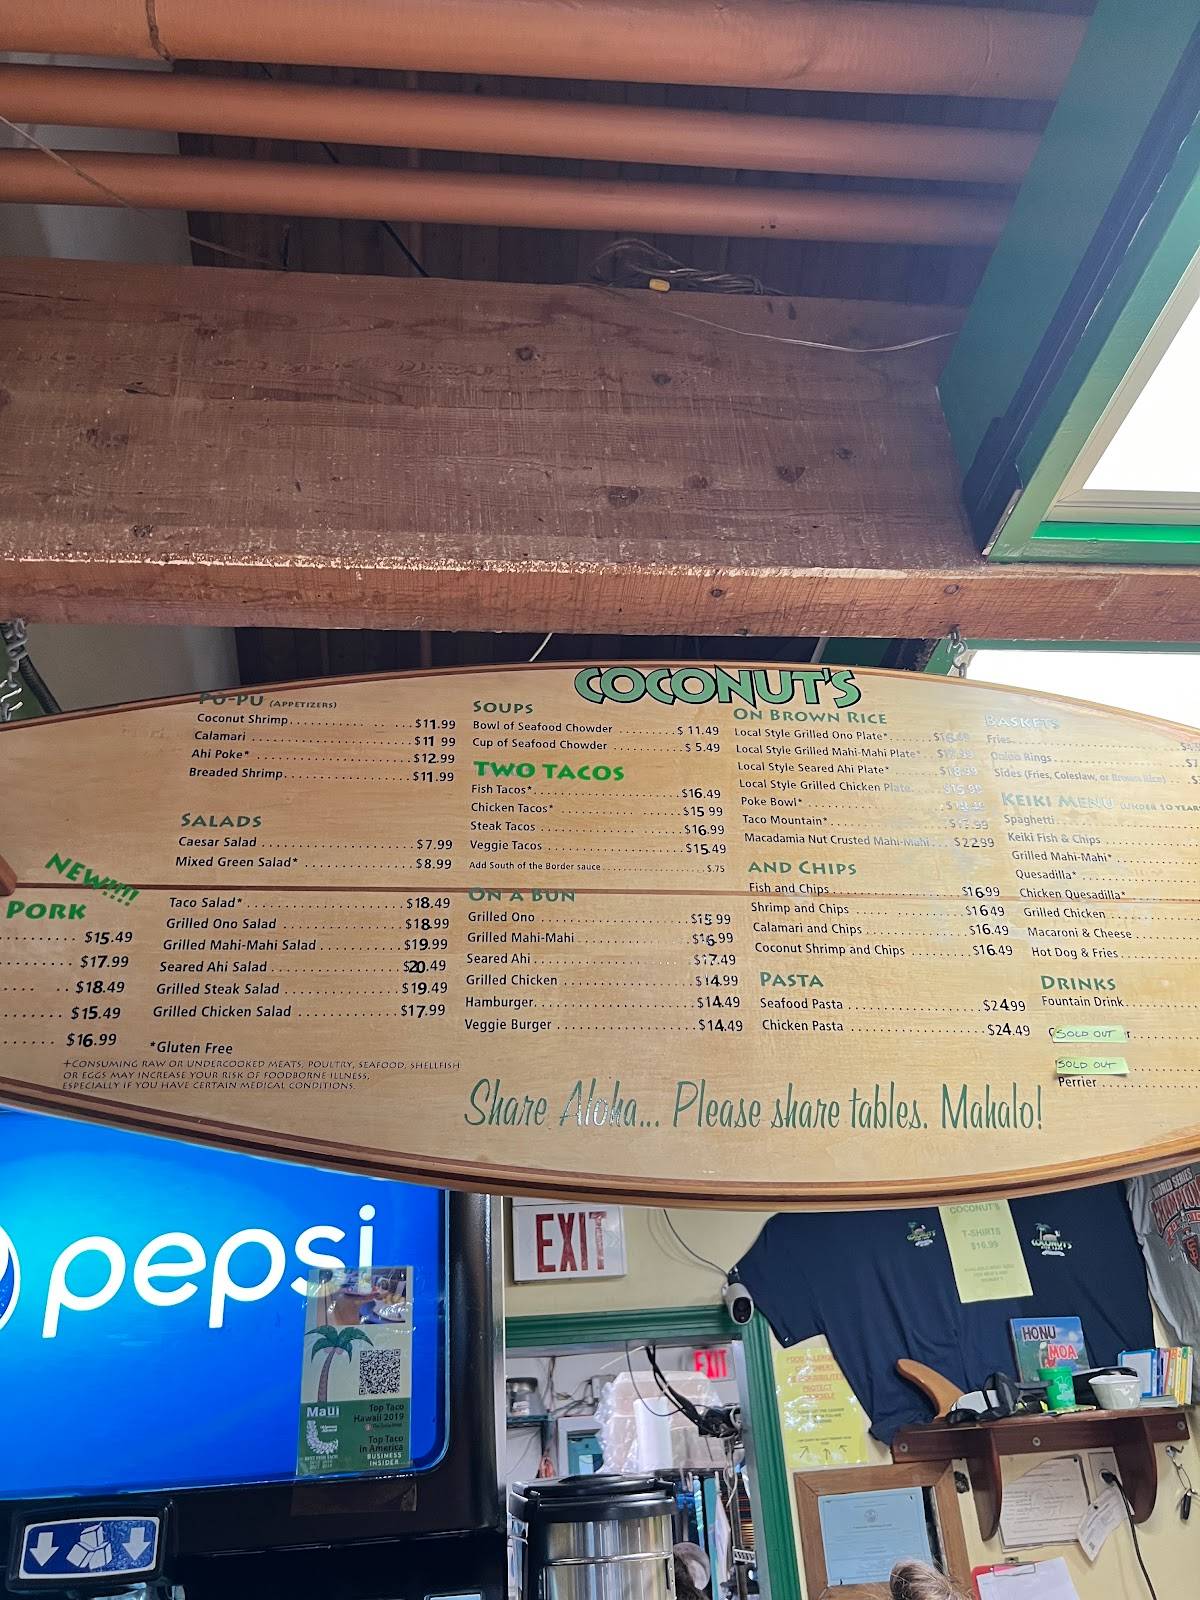 COCONUT'S
PU-PU (APPETIZERS)
Coconut Shrimp $11.99
Calamari $11 99
Ahi Poke* $12.99
Breaded Shrimp $11.99
SALADS
Caesar Salad $7.99
Mixed Green Salad* $8.99
Taco Salad* $18.49
Grilled Ono Salad $18.99
Grilled Mahi-Mahi Salad $19.99
Seared Ahi Salad $20.49
Grilled Steak Salad $19.49
Grilled Chicken Salad $17.99
*Gluten Free
+CONSUMING RAW OR UNDERCOOKED MEATS, POULTRY, SEAFOOD, SHELLFISH
OR EGGS MAY INCREASE YOUR RISK OF FOODBORNE ILLNESS,
ESPECIALLY IF YOU HAVE CERTAIN MEDICAL CONDITIONS.
NEW!!!!
PORK
$15.49
$17.99
$18.49
$15.49
$16.99
SOUPS
Bowl of Seafood Chowder $ 11.49
Cup of Seafood Chowder $ 5.49
TWO TACOS
Fish Tacos* $16.49
Chicken Tacos* $15 99
Steak Tacos $16.99
Veggie Tacos $15.49
Add South of the Border sauce $.75
ON A BUN
Grilled Ono $15 99
Grilled Mahi-Mahi $16.99
Seared Ahi $17.49
Grilled Chicken $14.99
Hamburger $14.49
Veggie Burger $14.49
ON BROWN RICE
Local Style Grilled Ono Plate*
Local Style Grilled Mahi-Mahi Plate*
Local Style Seared Ahi Plate*
Local Style Grilled Chicken Plate
Poke Bowl*
Taco Mountain*
Macadamia Nut Crusted Mahi-Mahi $22.99
AND CHIPS
Fish and Chips $16.99
Shrimp and Chips $16.49
Calamari and Chips $16.49
Coconut Shrimp and Chips $16.49
PASTA
Seafood Pasta $24.99
Chicken Pasta $24.49
BASKETS
Fries
Onion Rings
Sides (Fries, Coleslaw, or Brown Rice)
KEIKI MENU (UNDER 10 YEARS
Spaghetti
Keiki Fish & Chips
Grilled Mahi-Mahi*
Quesadilla*
Chicken Quesadilla*
Grilled Chicken
Macaroni & Cheese
Hot Dog & Fries
DRINKS
Fountain Drink
SOLD OUT
SOLD OUT
Perrier
Share Aloha... Please share tables. Mahalo!
pepsi
Maui
Top Taco
Hawaii 2019
Top Taco
in America
BUSINESS
INSIDER
EXIT
EXIT
COCONUT'S
T-SHIRTS
$16.99
HONU
MOA
WORLD SERIES